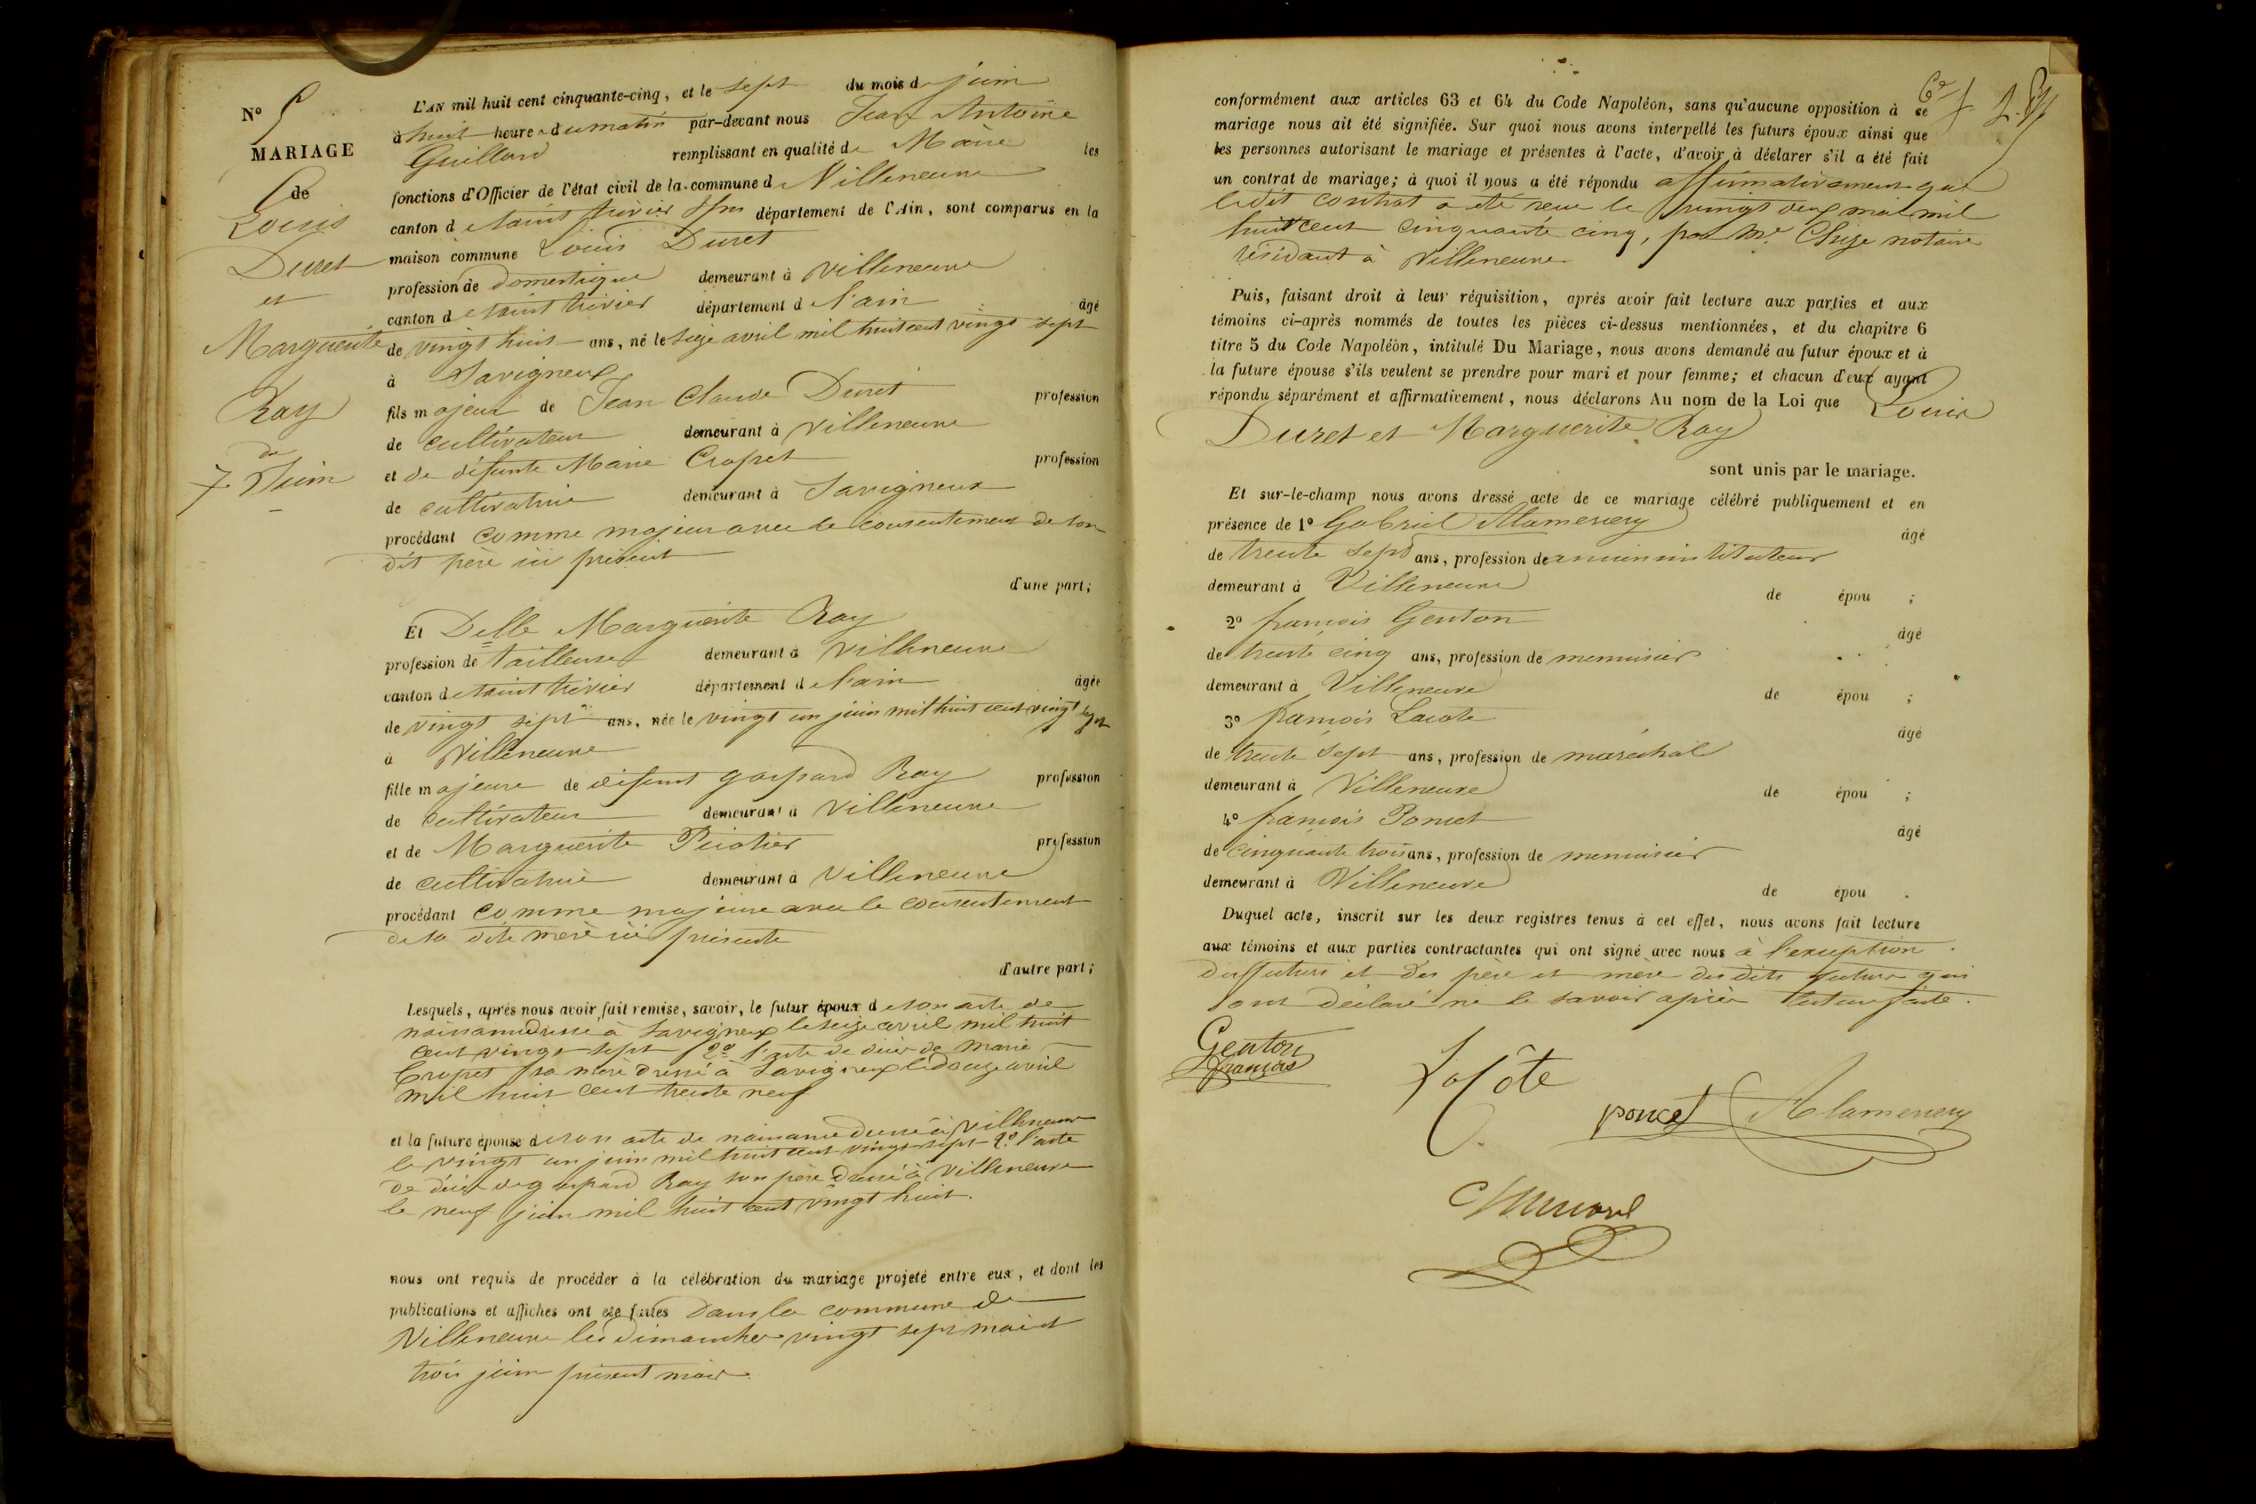 N° 5
MARIAGE
de
Louis
Duret
et
Marguerite
Ray
du
7 Juin
L'AN mil huit cent cinquante-cinq, et le sept du mois de juin
à huit heures du matin par-devant nous Jean Antoine
Guillard remplissant en qualité de Maire les
fonctions d'Officier de l'état civil de la commune de Villeneuve
canton de saint trivier département de l'Ain, sont comparus en la
maison commune Louis Duret
profession de domestique demeurant à Villeneuve
canton de saint trivier département de l'ain âgé
de vingt huit ans, né le seize avril mil huit cent vingt sept
à Savigneux
fils majeur de Jean Claude Duret profession
de cultivateur demeurant à Villeneuve
et de défunte Marie Cropet profession
de cultivatrice demeurant à Savigneux
procédant comme majeur avec le consentement de son
dit père ici présent
d'une part;
Et Delle Marguerite Ray
profession de tailleuse demeurant à Villeneuve
canton de saint trivier département de l'ain âgée
de vingt sept ans, née le vingt un juin mil huit cent vingt sept
à Villeneuve
fille majeure de défunt gaspard Ray profession
de cultivateur demeurant à Villeneuve
et de Marguerite profession
de cultivatrice demeurant à Villeneuve
procédant comme majeure avec le consentement
de sa dite mère ici présente
d'autre part;
Lesquels, après nous avoir fait remise, savoir, le futur époux de son acte de
naissance dressé à Savigneux le seize avril mil huit
cent vingt sept 2° l'acte de décès de Marie
Cropet sa mère dressé à Savigneux le douze avril
mil huit cent trente neuf
et la future épouse de son acte de naissance dressé à Villeneuve
le vingt un juin mil huit cent vingt sept 2° l'acte
de décès de gaspard Ray son père dressé à Villeneuve
le neuf juin mil huit cent vingt huit.
nous ont requis de procéder à la célébration du mariage projeté entre eux, et dont les
publications et affiches ont été faites dans la commune de
Villeneuve les dimanches vingt sept mai et
trois juin présent mois
conformément aux articles 63 et 64 du Code Napoléon, sans qu'aucune opposition à ce
mariage nous ait été signifiée. Sur quoi nous avons interpellé les futurs époux ainsi que
les personnes autorisant le mariage et présentes à l'acte, d'avoir à déclarer s'il a été fait
un contrat de mariage; à quoi il nous a été répondu affirmativement que
ledit contrat a été reçu le vingt deux mai mil
huit cent cinquante cinq, par Me notaire
résidant à Villeneuve
Puis, faisant droit à leur réquisition, après avoir fait lecture aux parties et aux
témoins ci-après nommés de toutes les pièces ci-dessus mentionnées, et du chapitre 6
titre 5 du Code Napoléon, intitulé Du Mariage, nous avons demandé au futur époux et à
la future épouse s'ils veulent se prendre pour mari et pour femme; et chacun d'eux ayant
répondu séparément et affirmativement, nous déclarons Au nom de la Loi que Louis
Duret et Marguerite Ray
sont unis par le mariage.
Et sur-le-champ nous avons dressé acte de ce mariage célébré publiquement et en
présence de 1° Gabriel Alamercery
âgé
de trente sept ans, profession de ancien instituteur
demeurant à Villeneuve
de épou ;
2° françois Genton
âgé
de trente cinq ans, profession de menuisier
demeurant à Villeneuve
de épou ;
3° françois Lacote
âgé
de trente sept ans, profession de maréchal
demeurant à Villeneuve
de épou ;
4° françois Poncet
âgé
de cinquante trois ans, profession de menuisier
demeurant à Villeneuve
de épou .
Duquel acte, inscrit sur les deux registres tenus à cet effet, nous avons fait lecture
aux témoins et aux parties contractantes qui ont signé avec nous à l'exception
des futurs et des père et mère des dits futurs qui
ont déclaré ne le savoir après lecture faite.
Genton
françois
LaCôte
poncet
Alamercery